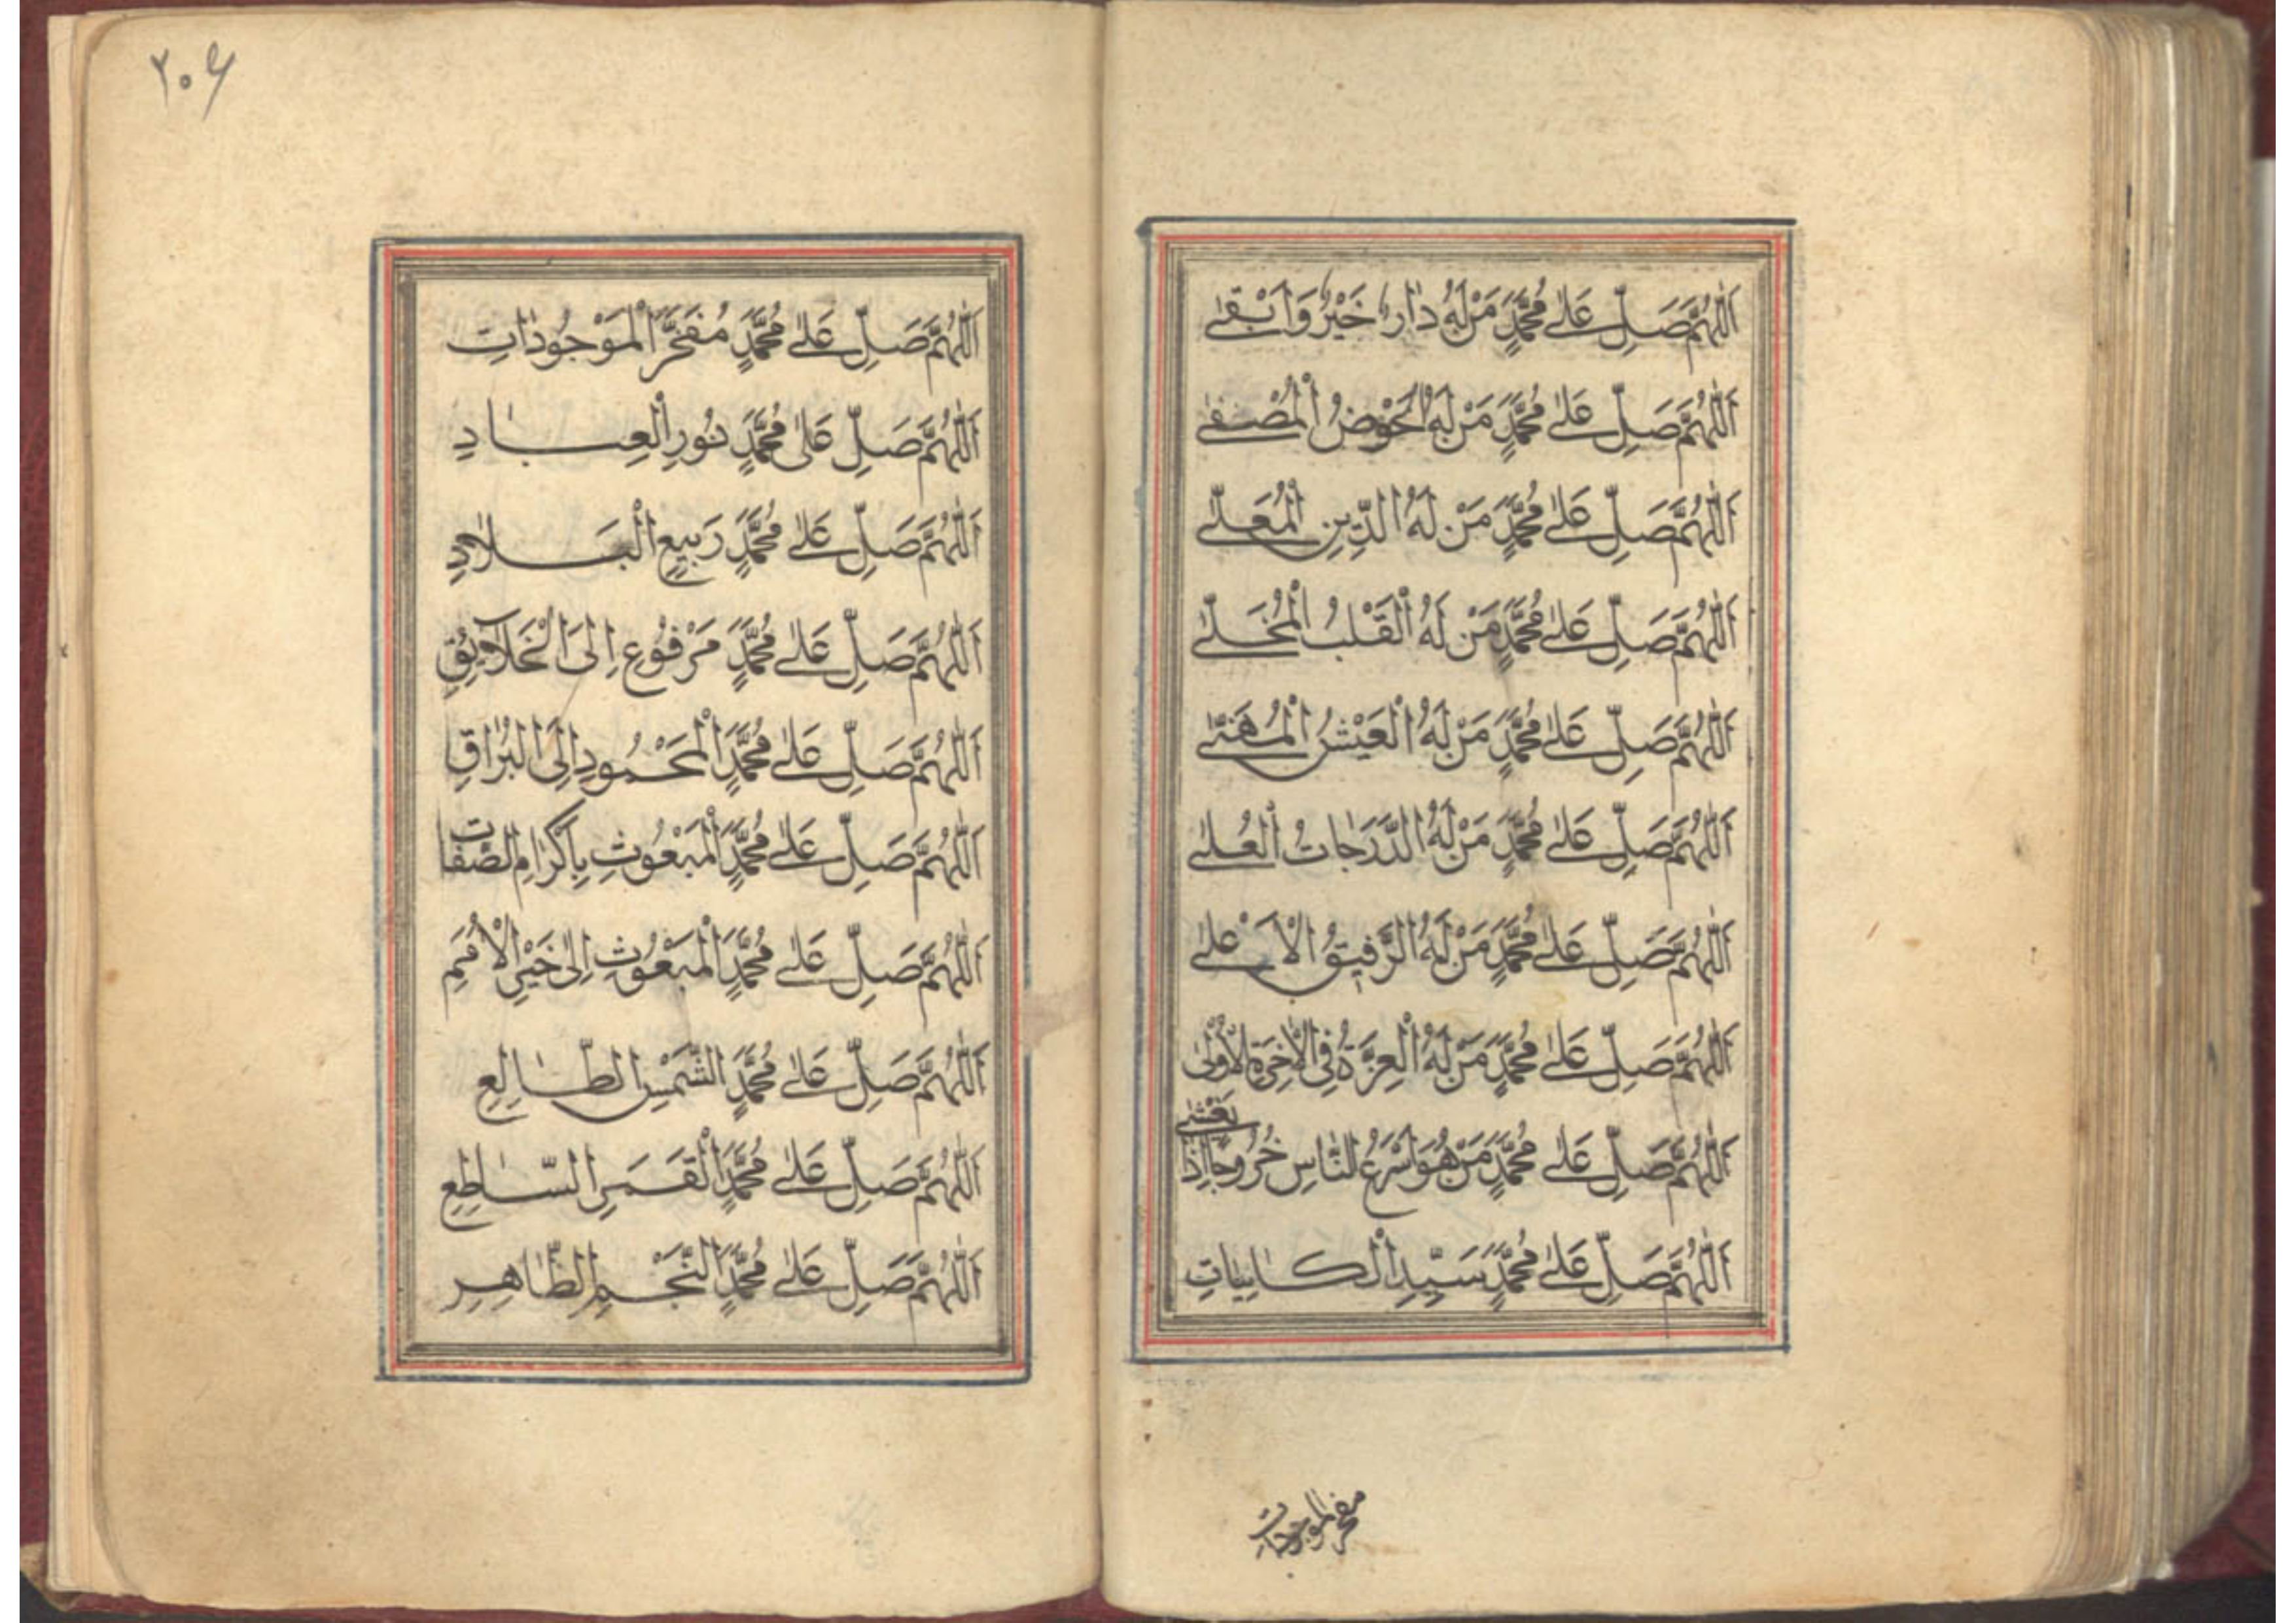 اَللّٰهُمَّ صَلِّ عَلٰى مُحَمَّدٍ مَنْ لَهُ دٰارٌ خَيْرٌ وَاَبْقٰى
اَللّٰهُمَّ صَلِّ عَلٰى مُحَمَّدٍ مَنْ لَهُ الْحَوْضُ الْمُصَفٰى
اَللّٰهُمَّ صَلِّ عَلٰى مُحَمَّدٍ مَنْ لَهُ الدِّينِ الْمُعَلّٰى
اَللّٰهُمَّ صَلِّ عَلٰى مُحَمَّدٍ مَنْ لَهُ الْقَلْبُ الْمُخَلّٰى
اَللّٰهُمَّ صَلِّ عَلٰى مُحَمَّدٍ مَنْ لَهُ الْعَيْشُ الْمُهَنّٰى
اَللّٰهُمَّ صَلِّ عَلٰى مُحَمَّدٍ مَنْ لَهُ الدَّرَجٰاتُ الْعُلٰى
اَللّٰهُمَّ صَلِّ عَلٰى مُحَمَّدٍ مَنْ لَهُ الرَّفيقُ الْاَعْلٰى
اَللّٰهُمَّ صَلِّ عَلٰى مُحَمَّدٍ مَنْ لَهُ الْعِزَّةُ فِى الْاٰخِرَةِ وَالْاُولٰى
اَللّٰهُمَّ صَلِّ عَلٰى مُحَمَّدٍ مَنْ هُوَ اَسْرَعُ النّٰاسِ خُرُوجًا اِذٰا
اَللّٰهُمَّ صَلِّ عَلٰى مُحَمَّدٍ سَيِّدِ الْكٰايِنٰاتِ
مفخر الموجودات
٢٠٤
اَللّٰهُمَّ صَلِّ عَلٰى مُحَمَّدٍ مُفَخَّرِ الْمَوْجُودٰاتِ
اَللّٰهُمَّ صَلِّ عَلٰى مُحَمَّدٍ نُورِ الْعِبٰادِ
اَللّٰهُمَّ صَلِّ عَلٰى مُحَمَّدٍ رَبيعِ الْبَلادِ
اَللّٰهُمَّ صَلِّ عَلٰى مُحَمَّدٍ مَرْفُوعِ اِلَى الْخَلآئِقِ
اَللّٰهُمَّ صَلِّ عَلٰى مُحَمَّدٍ الْمَحْمُودِ اِلَى الْبُرٰاقِ
اَللّٰهُمَّ صَلِّ عَلٰى مُحَمَّدٍ الْمَبْعُوثِ بِاَكْرٰامِ الصِّفٰاتِ
اَللّٰهُمَّ صَلِّ عَلٰى مُحَمَّدٍ الْمَبْعُوثِ اِلٰى خَيْرِ الْاُمَمِ
اَللّٰهُمَّ صَلِّ عَلٰى مُحَمَّدٍ الشَّمْسِ الطّٰالِعِ
اَللّٰهُمَّ صَلِّ عَلٰى مُحَمَّدٍ الْقَمَرِ السّٰاطِعِ
اَللّٰهُمَّ صَلِّ عَلٰى مُحَمَّدٍ النَّجْمِ الظّٰاهِرِ